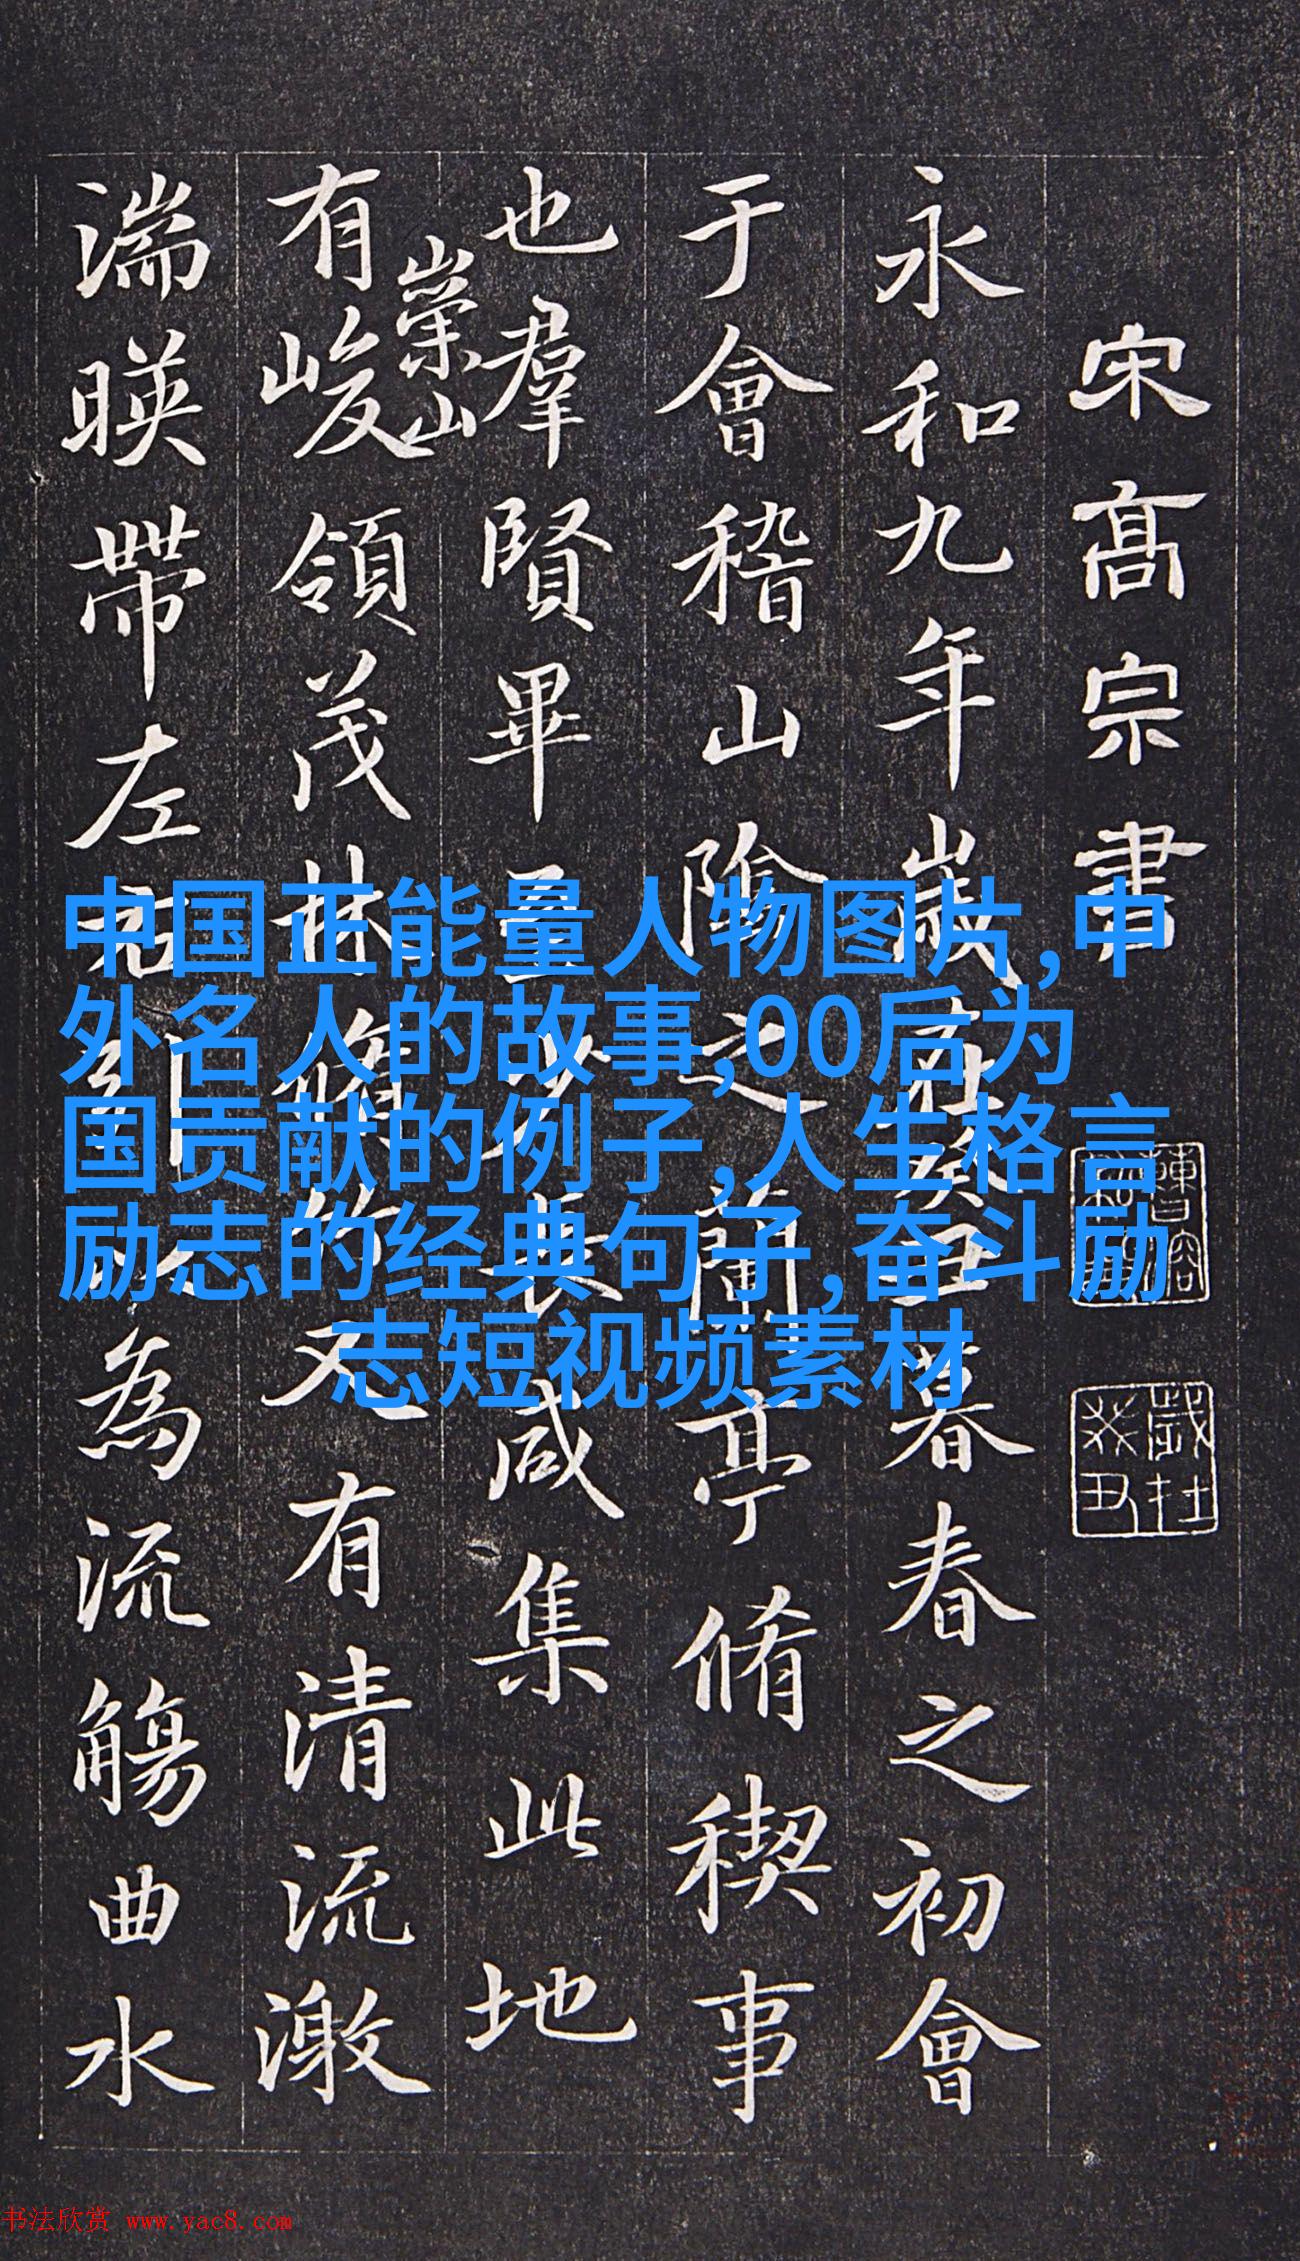 宋髙宗書
永和九年歲在癸丑暮春之初會
于會稽山陰之蘭亭脩稧事
也羣賢畢至少長咸集此地
有崇山峻領茂林脩竹又有清流激
湍暎帶左右引以為流觴曲水
歲在
癸丑
中国正能量人物图片,中
外名人的故事,00后为
国贡献的例子,人生格言
励志的经典句子,奋斗励
志短视频素材
书法欣赏 www.yac8.com